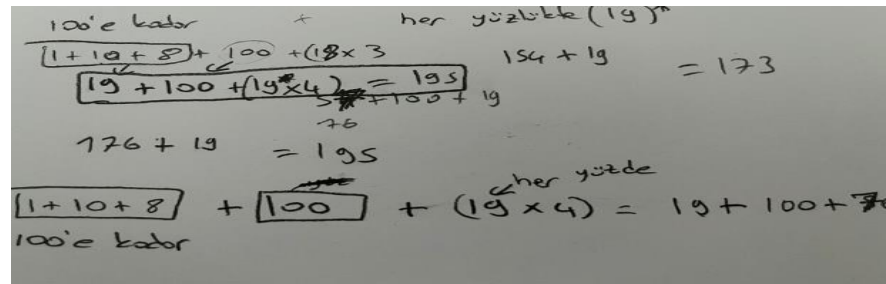 100'e kadar + her yüzlükte (19)
[1 + 10 + 8] + 100 + (18 x 3 154 + 19 = 173
19 + 100 + (19 x 4) = 195
+ 100 + 19
76
176 + 19 = 195
her yüzde
[1 + 10 + 8] + [100] + (19 x 4) = 19 + 100 +
100'e kadar